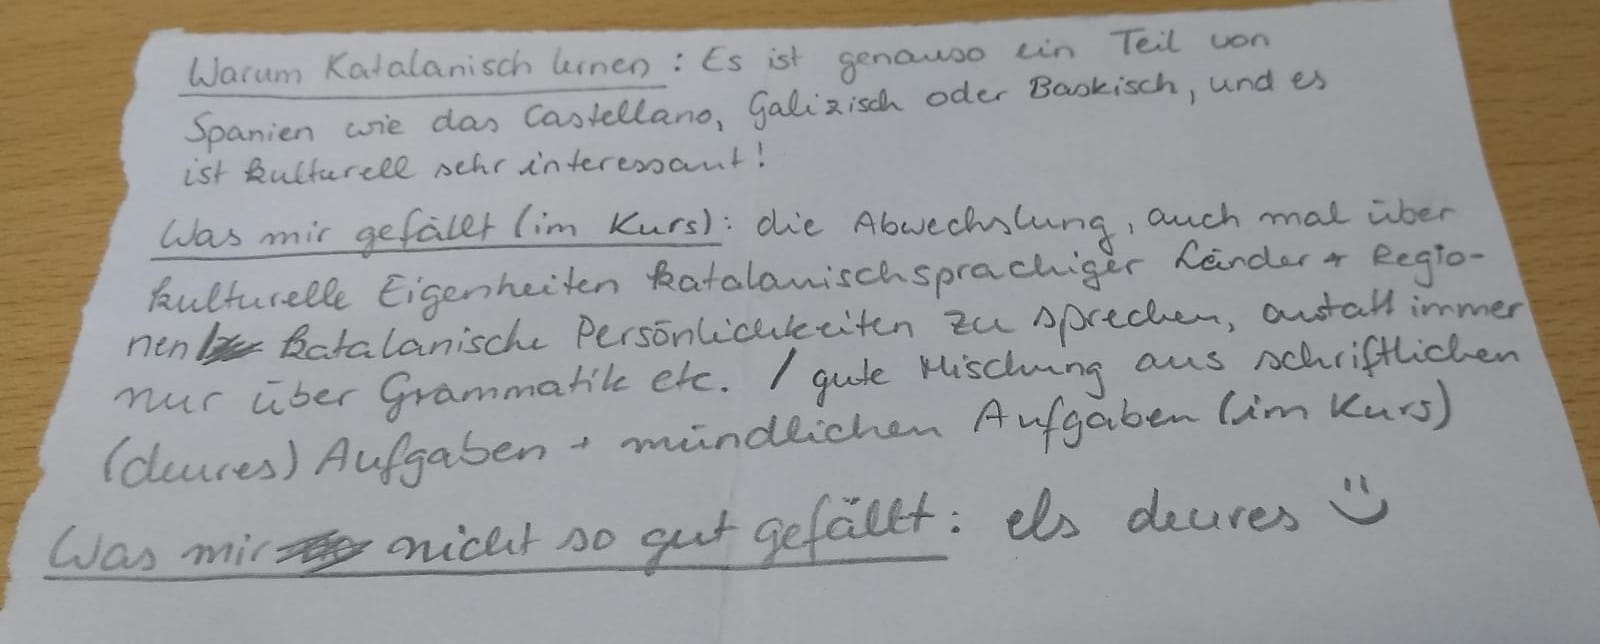 Warum Katalanisch lernen : Es ist genauso ein Teil von
Spanien wie das Castellano, Galizisch oder Baskisch, und es
ist kulturell sehr interessant!
Was mir gefällt (im Kurs): die Abwechslung, auch mal über
kulturelle Eigenheiten katalanischsprachiger Länder + Regio-
nen/ katalanische Persönlichkeiten zu sprechen, anstatt immer
nur über Grammatik etc. / gute Mischung aus schriftlichen
(deures) Aufgaben + mündlichen Aufgaben (im Kurs)
Was mir nicht so gut gefällt: els deures